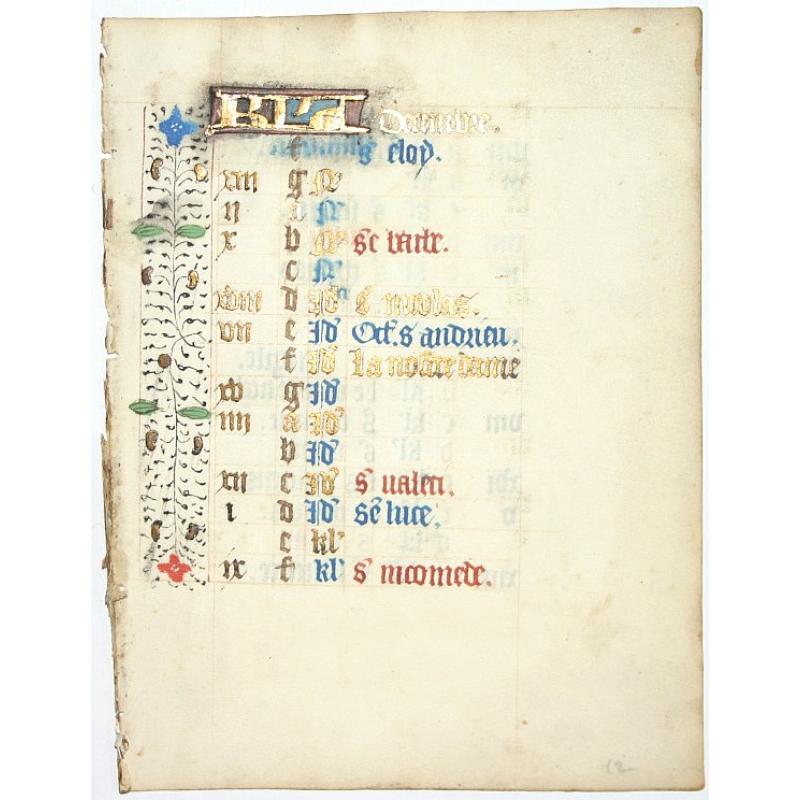 KL Decembre.
f s eloy.
xiii g N
ii a N
x b N Se barbe.
c N
xviii d Id s nicolas.
vii e Id Oct. s andrieu.
f Id La nostre dame
xv g Id
iiii a Id
b Id
xii c Id s ualeri.
i d Id Se luce.
e kl
ix f kl s nicomede.
12